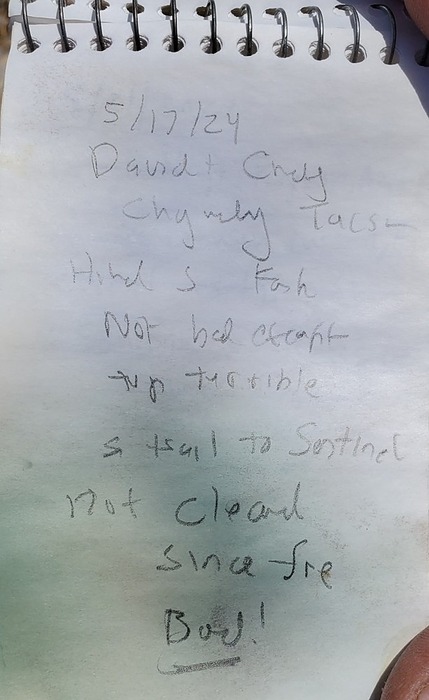 5/17/24
David + Cindy
Tucson
Hiked S Fork
Not bad except
top terrible
S trail to Sentinel
not cleard
since fire
Bad!